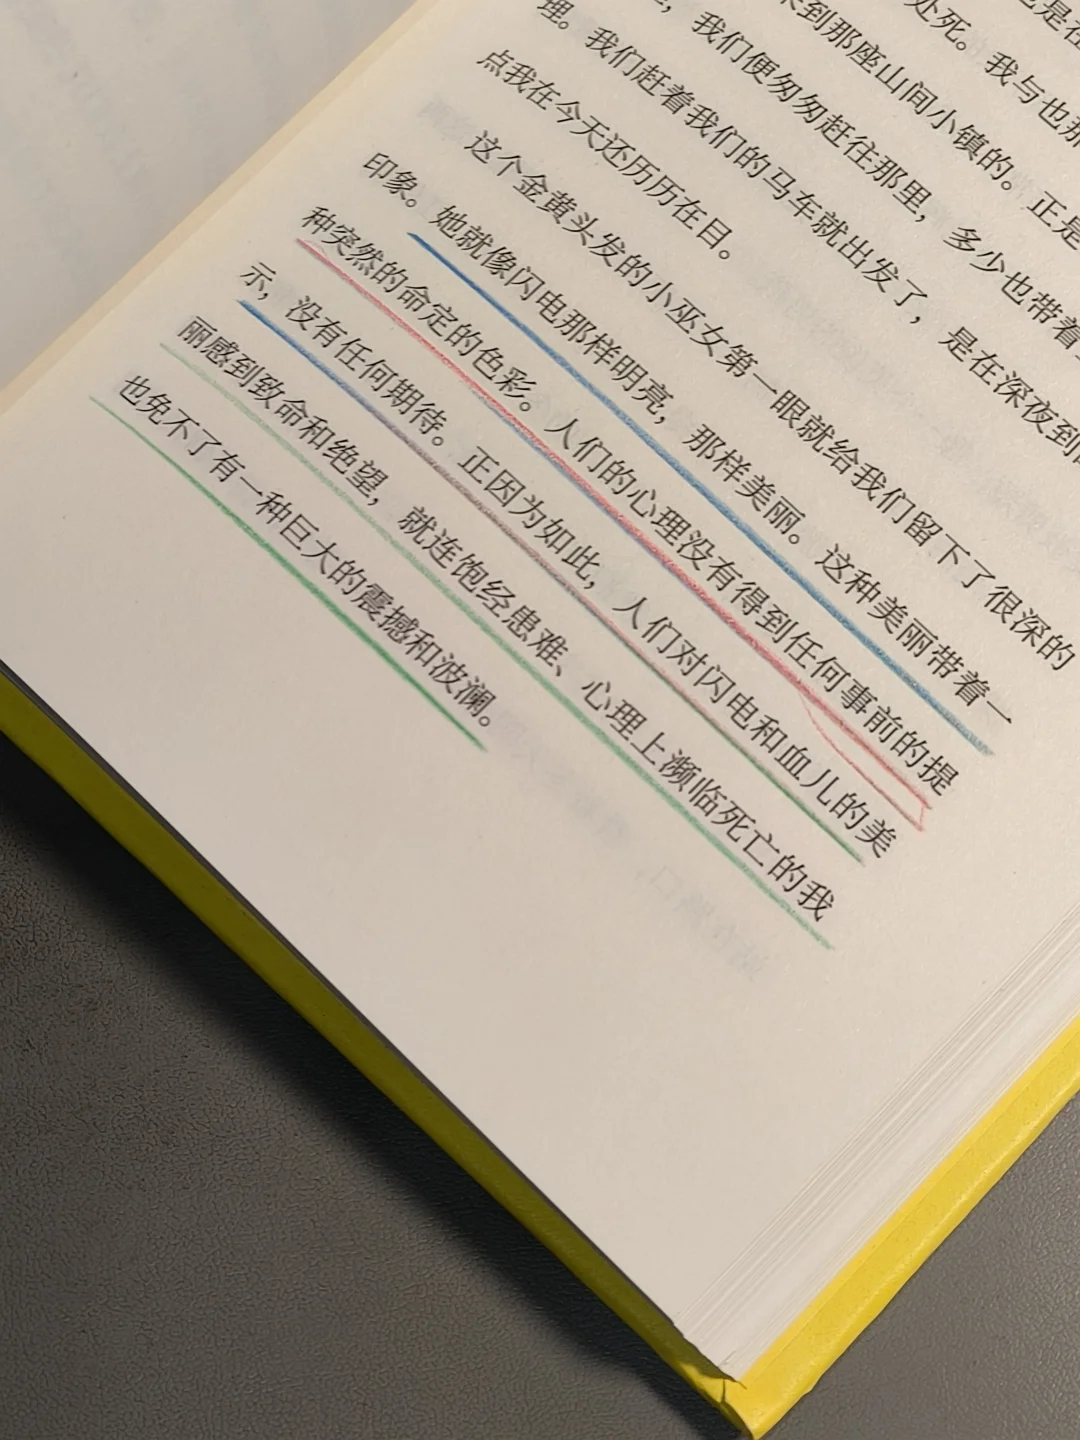 也是在
处死。我与
来到那座山间小镇的。正是
，我们便匆匆赶往那里，多少也带着
理。我们赶着我们的马车就出发了，是在深夜到
点我在今天还历历在目。
这个金黄头发的小巫女第一眼就给我们留下了很深的
印象。她就像闪电那样明亮，那样美丽。这种美丽带着一
种突然的命定的色彩。人们的心理没有得到任何事前的提
示，没有任何期待。正因为如此，人们对闪电和血儿的美
丽感到致命和绝望，就连饱经患难、心理上濒临死亡的我
也免不了有一种巨大的震撼和波澜。